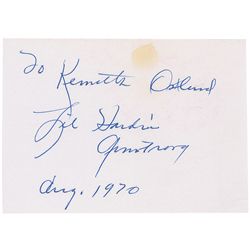 To Kenneth Oslund
Lil Hardin
Armstrong
Aug. 1970